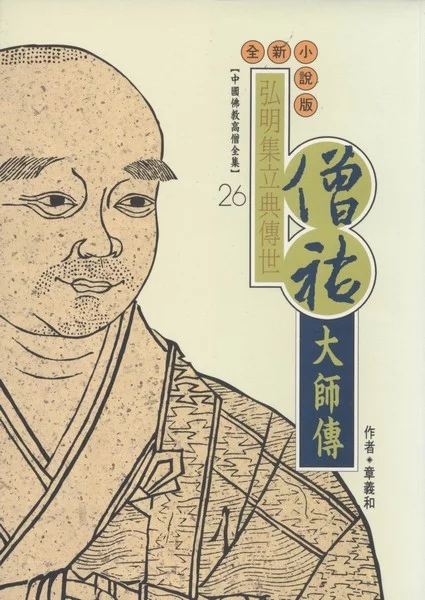 全新小說版
僧祐
大師傳
弘明集立典傳世
【中國佛教高僧全集】
26
作者◆章義和